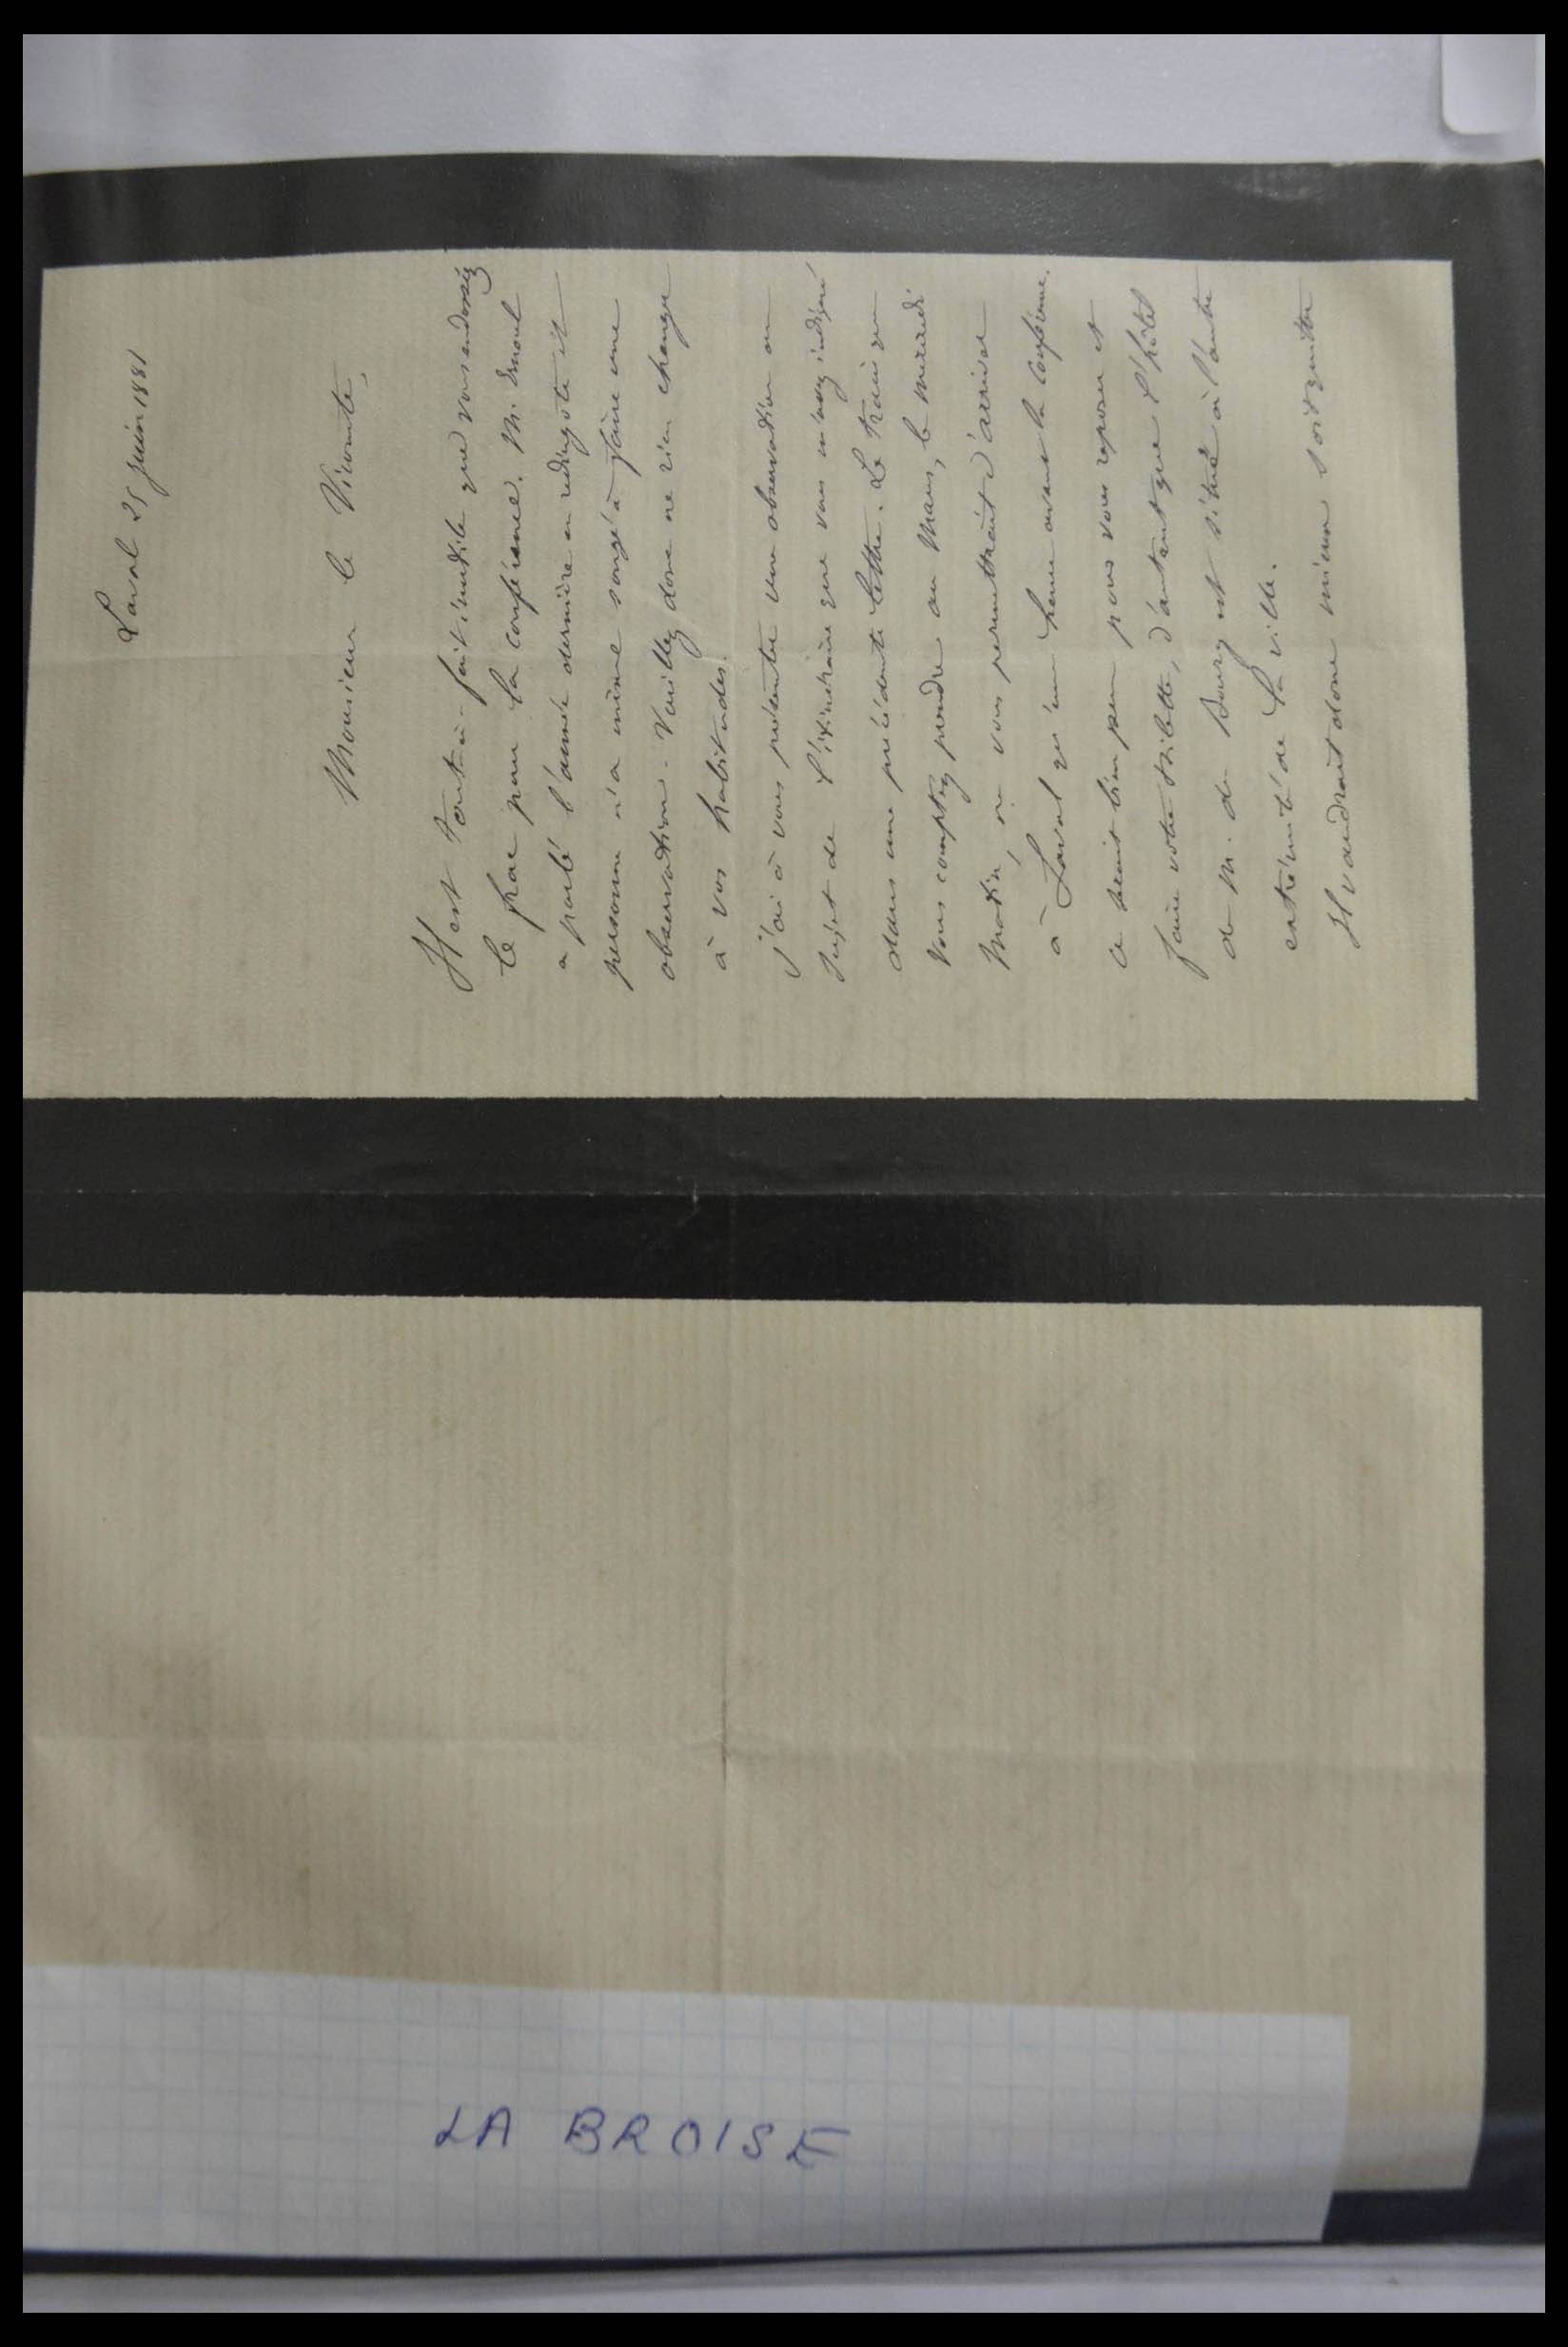 Laval 25 juin 1881
Monsieur le Vicomte,
Il est tout-à-fait inutile que vous endossiez
le frac pour la conférence. M. Ernoul
a parlé l'année dernière en redingote et
personne n'a même songé à faire une
observation. Veuillez donc ne rien changer
à vos habitudes.
J'ai à vous présenter une observation au
sujet de l'itinéraire que vous m'avez indiqué
dans une précédente lettre. Le train que
vous comptez prendre au Mans, le mercredi
matin, ne vous permettrait d'arriver
à Laval qu'une heure avant la conférence.
Ce serait bien peu pour vous reposer et
faire votre toilette, d'autant que l'hôtel
de M. du Bourg est situé à l'autre
extrémité de la ville.
Il vaudrait donc mieux soit quitter
LA BROISE